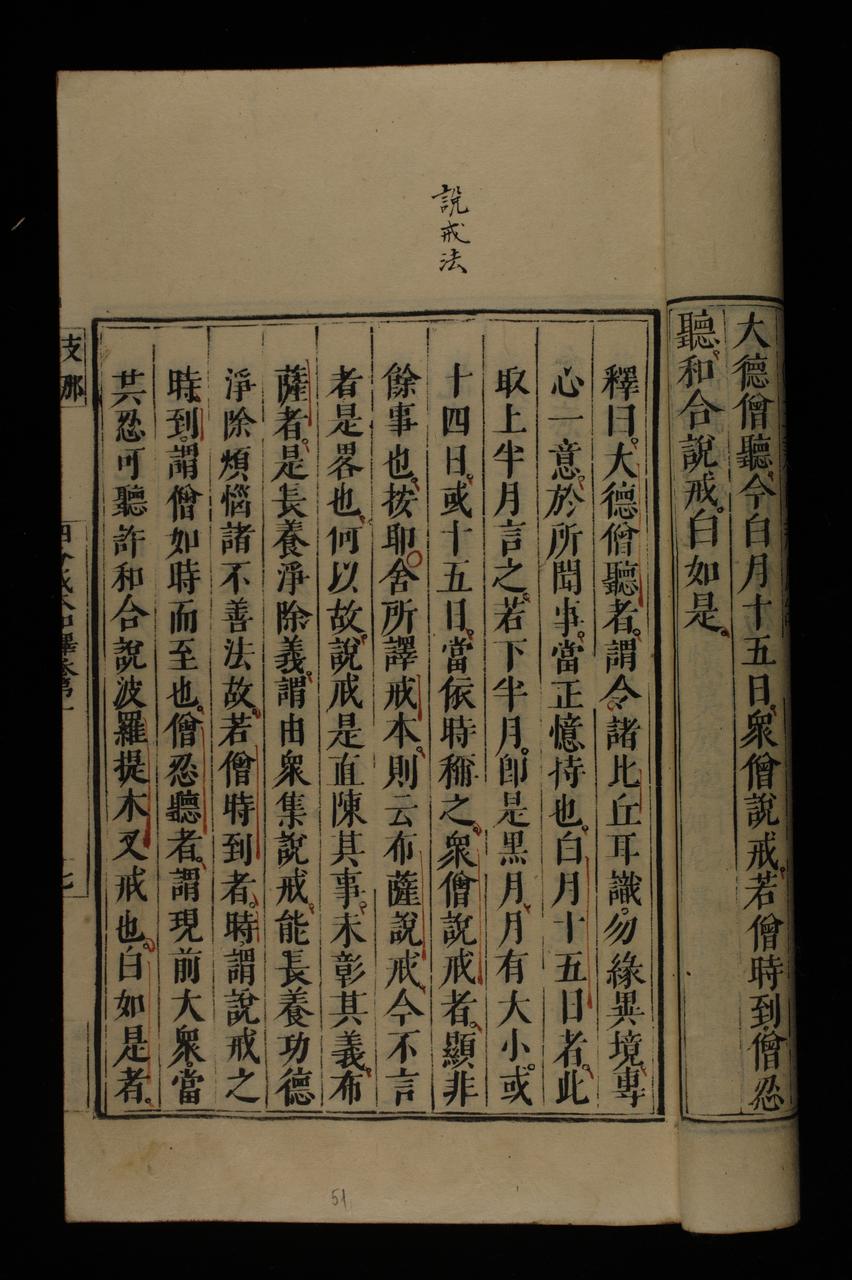 大德僧聽。今白月十五日。衆僧說戒。若僧時到僧忍
聽。和合說戒。白如是。
說戒法
釋曰。大德僧聽者。謂令諸比丘耳識。勿緣異境。專
心一意。於所聞事。當正憶持也。白月十五日者。此
取上半月言之。若下半月。卽是黑月。月有大小。或
十四日。或十五日。當依時稱之。衆僧說戒者。顯非
餘事也。按耶舍所譯戒本。則云布薩說戒。今不言
者是畧也。何以故。說戒是直陳其事。未彰其義。布
薩者。是長養淨除義。謂由衆集說戒。能長養功德
淨除煩惱諸不善法故。若僧時到者。時謂說戒之
時。到。謂僧如時而至也。僧忍聽者。謂現前大衆。當
其忍可聽許和合說波羅提木叉戒也。白如是者。
支那
四分戒本
釋卷第一
七
51